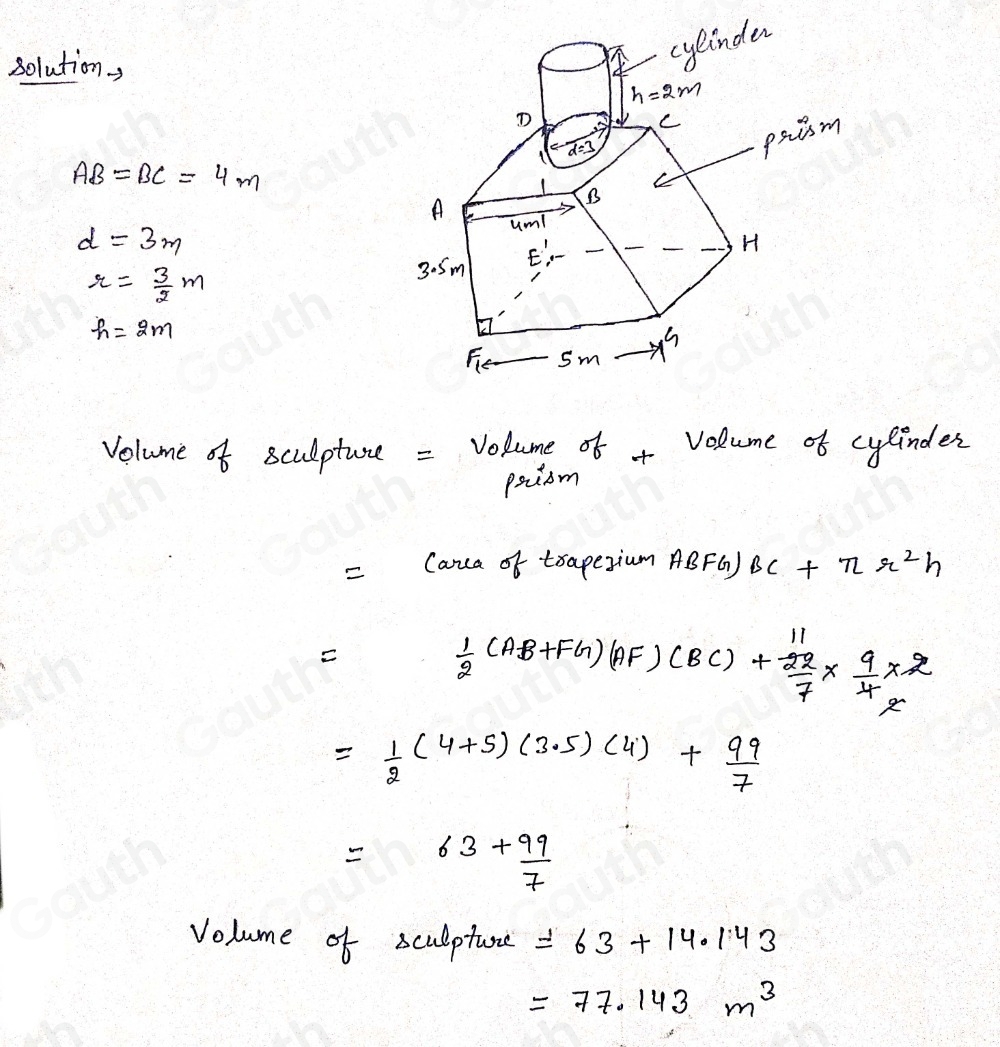 Solution →
cylinder
h = 2m
D
C
d=3
prism
AB = BC = 4 m
A
B
4m
d = 3m
E
H
3.5m
r = 3/2 m
h = 2m
F
5m
G
Volume of sculpture = Volume of prism + Volume of cylinder
= (area of trapezium ABFG) BC + π r² h
= 1/2 (AB+FG) (AF) (BC) + 22/7 × 9/4 × 2
11
2
= 1/2 (4+5) (3.5) (4) + 99/7
= 63 + 99/7
Volume of sculpture = 63 + 14.143
= 77.143 m³
Gauth